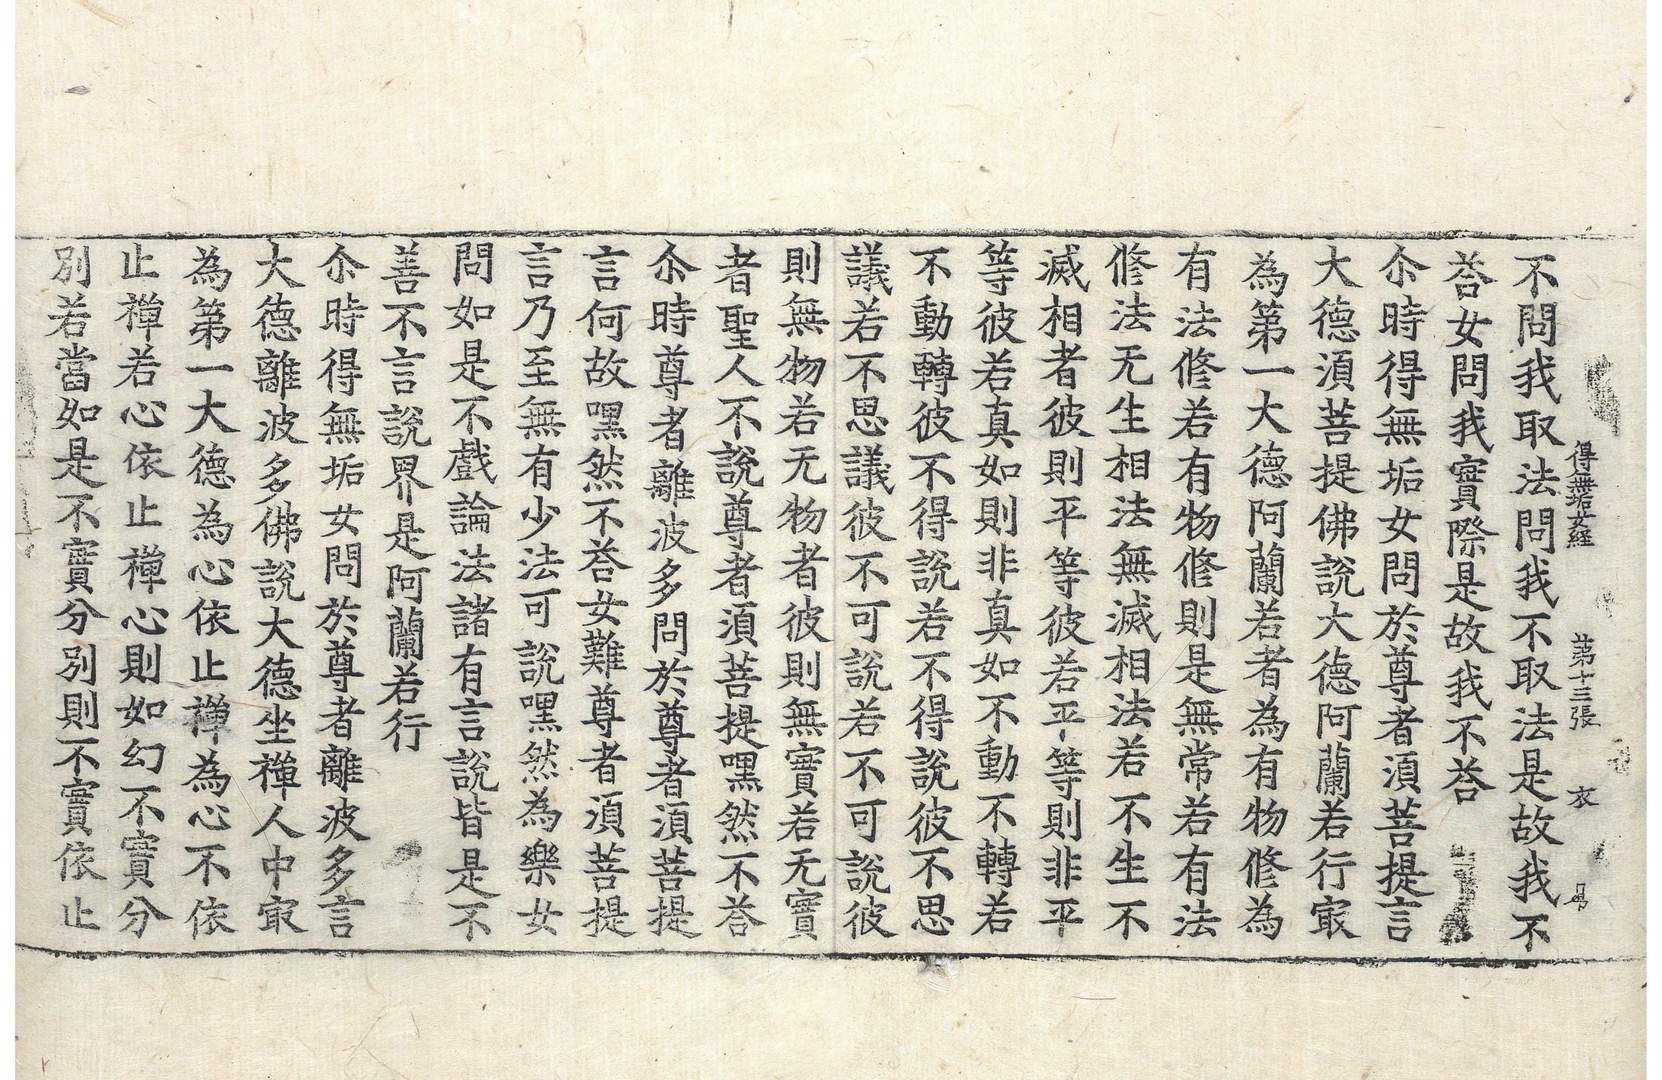 得無垢女経　第十三張　衣
不問我取法問我不取法是故我不
荅女問我實際是故我不荅
尒時得無垢女問於尊者湏菩提言
大德湏菩提佛說大德阿蘭若行㝡
為第一大德阿蘭若者為有物修為
有法修若有物修則是無常若有法
修法无生相法無滅相法若不生不
滅相者彼則平等彼若平等則非平
等彼若真如則非真如不動不轉若
不動轉彼不得說若不得說彼不思
議若不思議彼不可說若不可說彼
則無物若无物者彼則無實若无實
者聖人不說尊者湏菩提嘿然不荅
尒時尊者離波多問於尊者湏菩提
言何故嘿然不荅女難尊者湏菩提
言乃至無有少法可說嘿然為樂女
問如是不戲論法諸有言說皆是不
善不言說界是阿蘭若行
尒時得無垢女問於尊者離波多言
大德離波多佛說大德坐禅人中㝡
為第一大德為心依止禅為心不依
止禅若心依止禅心則如幻不實分
別若當如是不實分別則不實依止